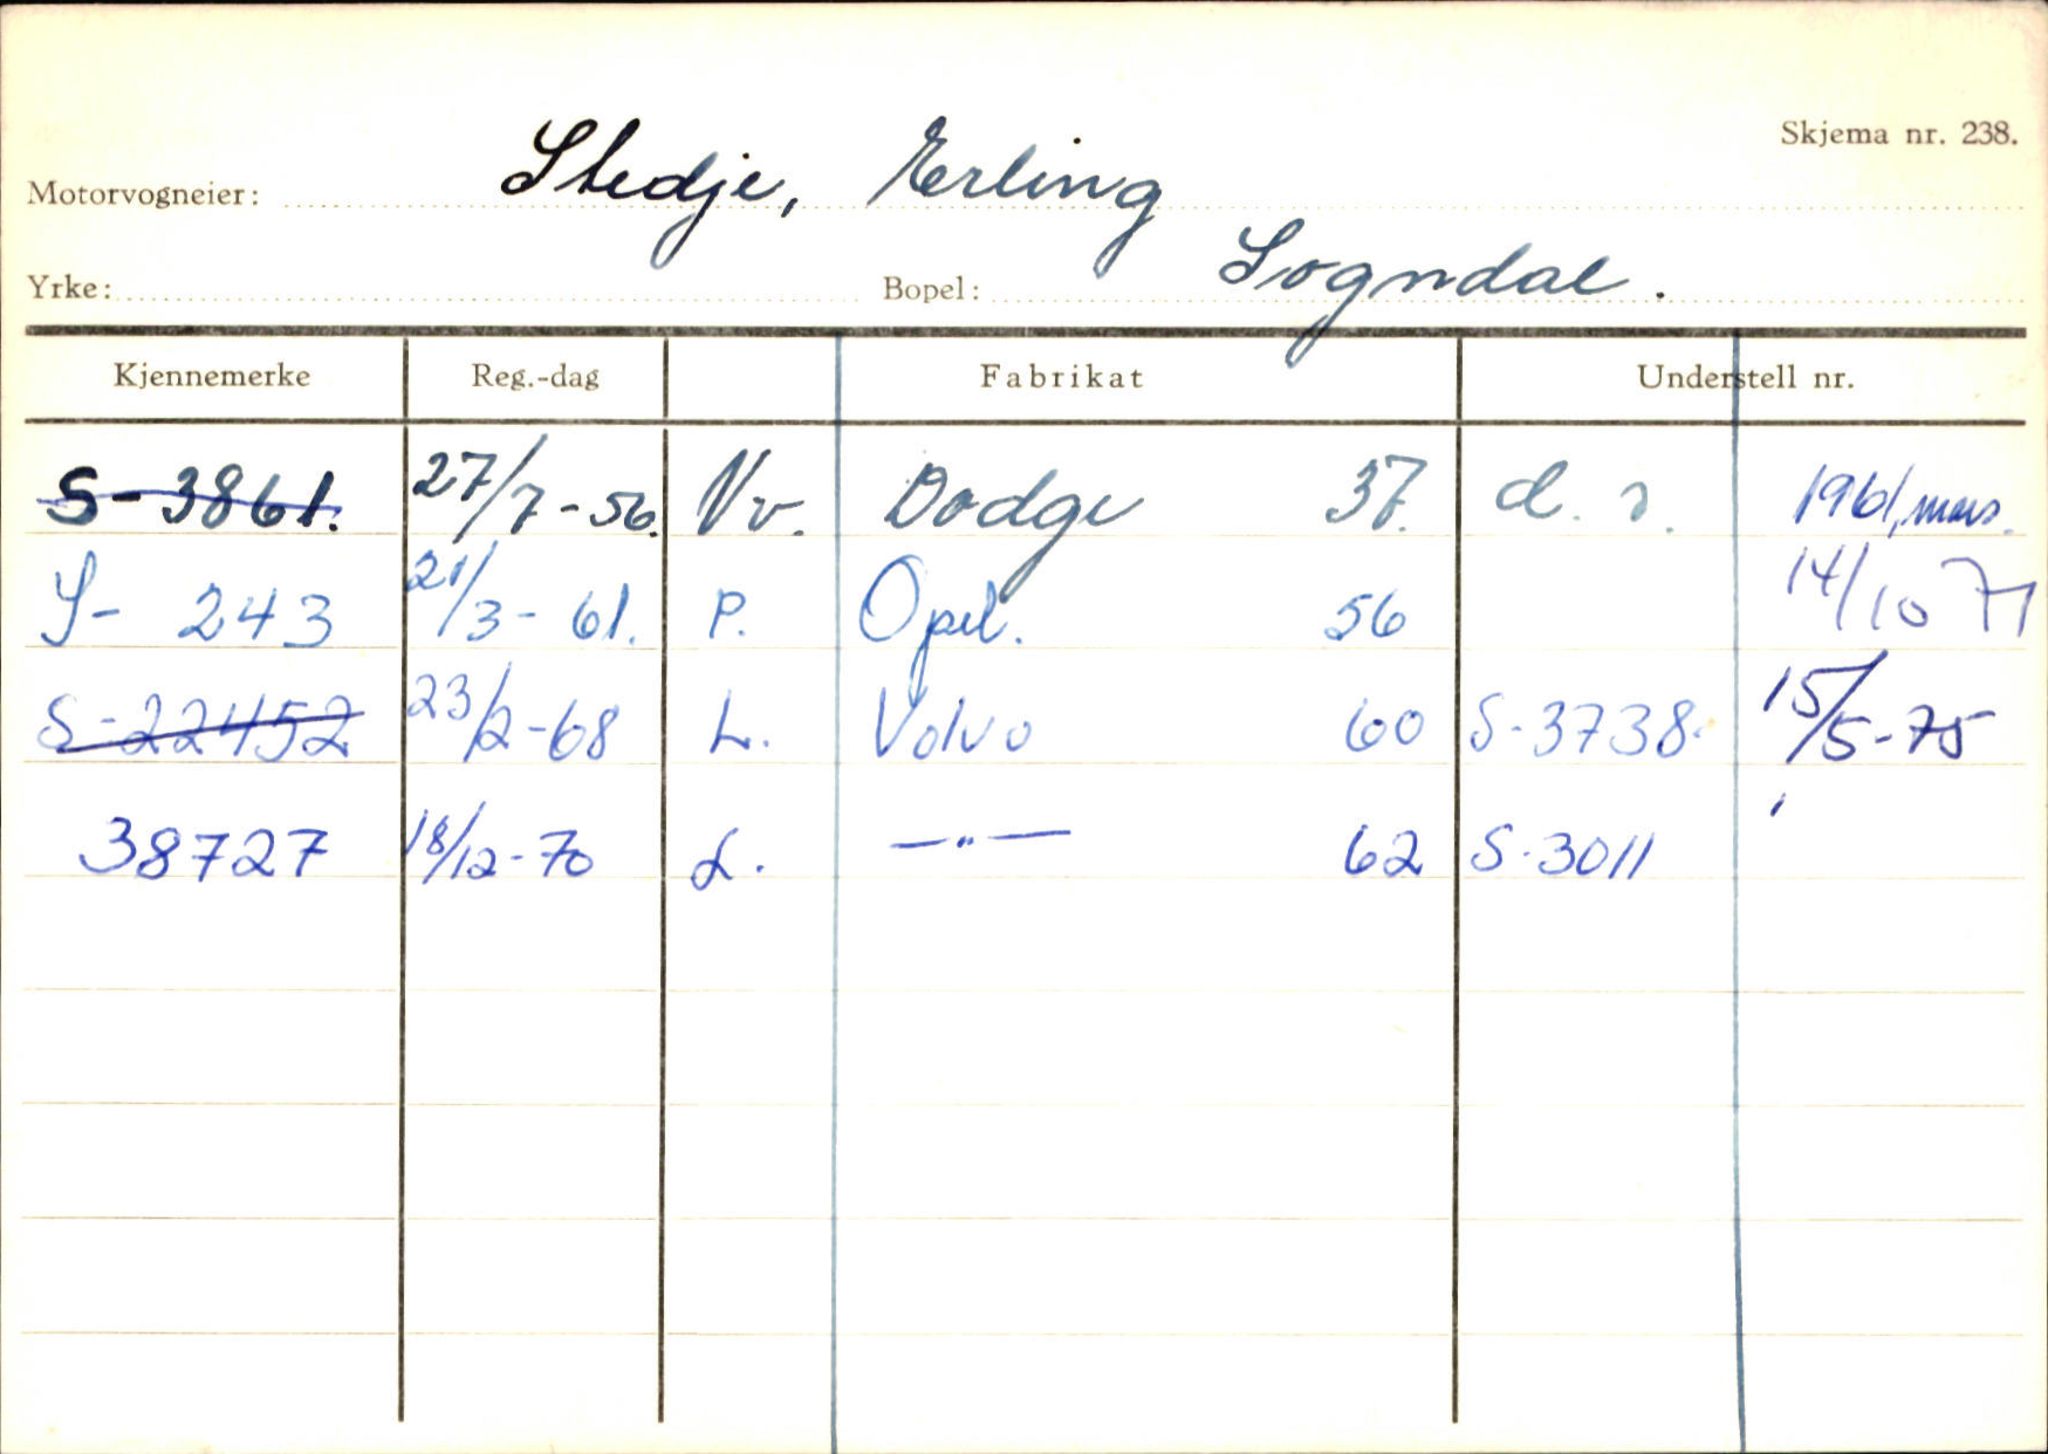 Skjema nr. 238.
Motorvogneier: Stedje, Erling
Yrke: Bopel: Sogndal.
Kjennemerke Reg.-dag Fabrikat Understell nr.
S-3861. 27/7-56. Vv. Dodge 37. d. s. 1961, mars.
S- 243 21/3-61. P. Opel. 56 14/10 71
S-22452 23/2-68 L. Volvo 60 S-3738. 15/5-75
38727 18/12-70 L. —"— 62 S.3011